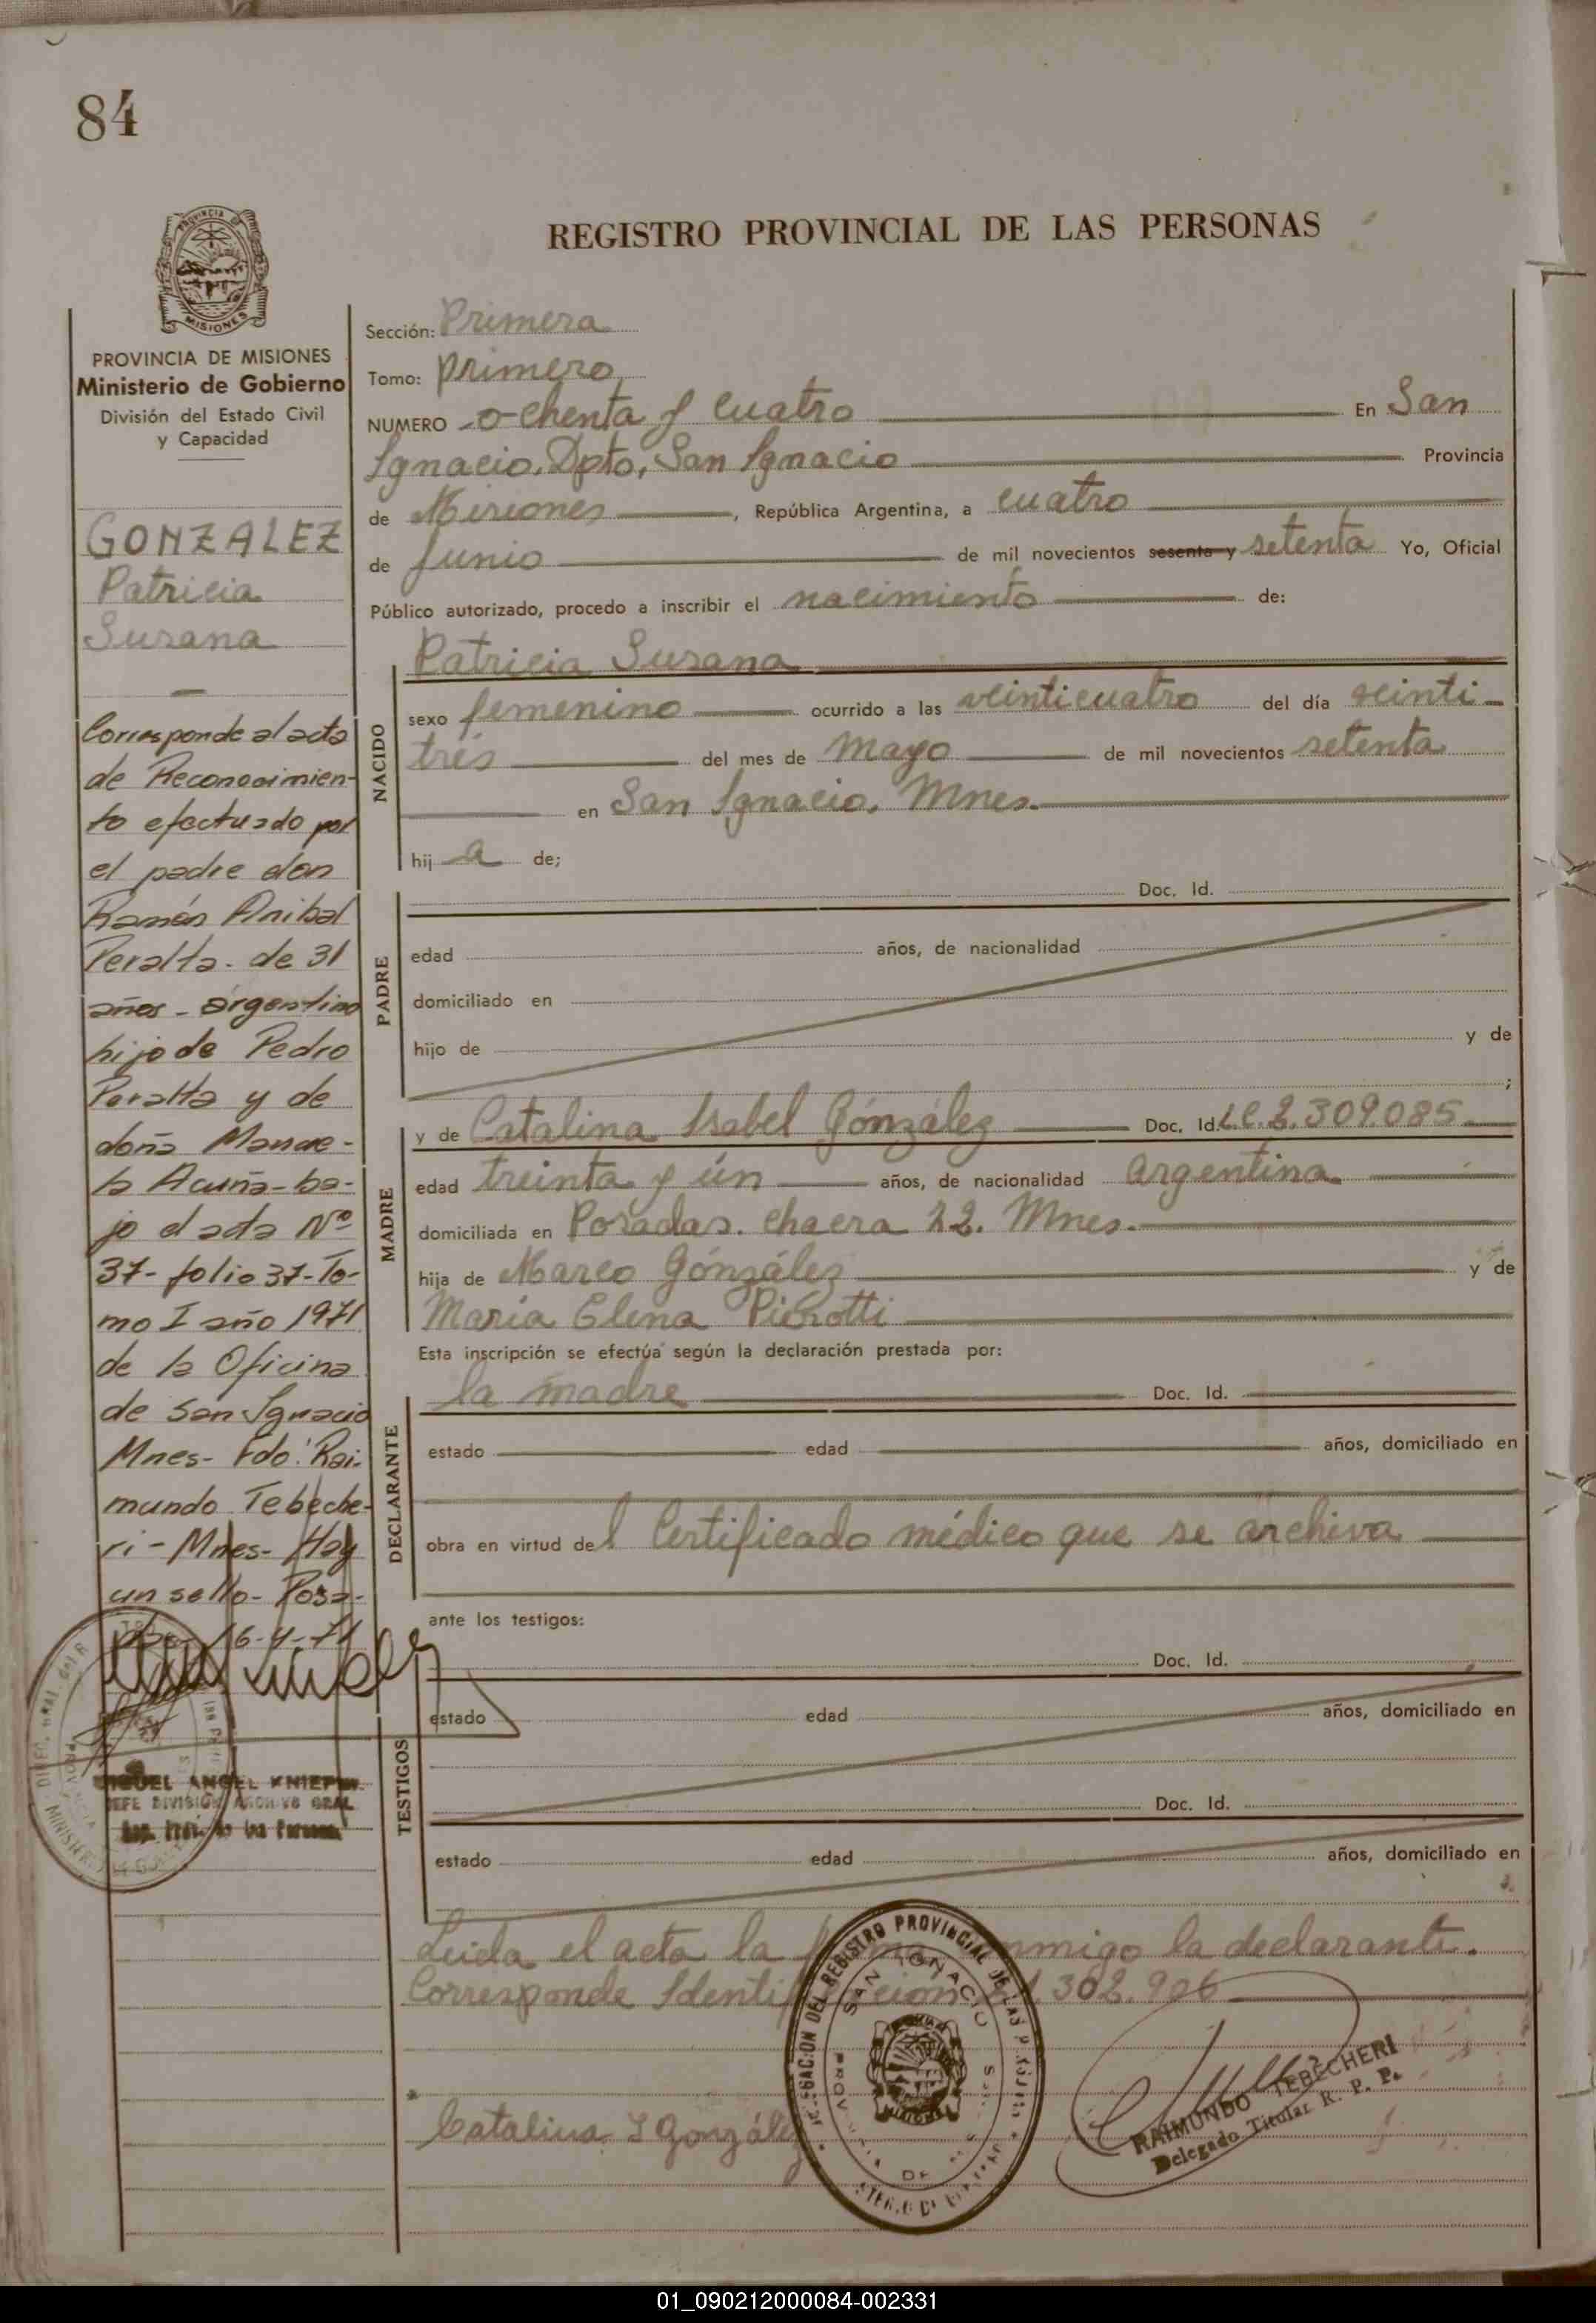 84
REGISTRO PROVINCIAL DE LAS PERSONAS
PROVINCIA DE
MISIONES
PROVINCIA DE MISIONES
Ministerio de Gobierno
División del Estado Civil
y Capacidad
GONZALEZ
Patricia
Susana
Corresponde al acta
de Reconocimien-
to efectuado por
el padre don
Ramón Anibal
Peralta- de 31
años- argentino
hijo de Pedro
Peralta y de
doña Manue-
la Acuña- ba-
jo el acta Nº
37- folio 37- To-
mo I año 1971
de la Oficina
de San Ignacio
Mnes- Fdo: Rai-
mundo Tebeche-
ri- Mnes- Hay
un sello- Posa-
16-4-71
MIGUEL ANGEL
JEFE DIVISION ARCHIVO GRAL
Sección: Primera
Tomo: primero
NUMERO -ochenta y cuatro En San
Ignacio, Dpto, San Ignacio Provincia
de Misiones, República Argentina, a cuatro
de Junio de mil novecientos sesenta y setenta Yo, Oficial
Público autorizado, procedo a inscribir el nacimiento de:
Patricia Susana
NACIDO
sexo femenino ocurrido a las veinticuatro del día veinti-
trés del mes de mayo de mil novecientos setenta
en San Ignacio, Mnes.
hij a de;
PADRE
Doc. Id.
edad años, de nacionalidad
domiciliado en
hijo de y de
;
MADRE
y de Catalina Isabel Gónzález Doc. Id. L.C. 2.309.085
edad treinta y ún años, de nacionalidad argentina
domiciliada en Posadas. chacra 22. Mnes.
hija de Marco Gónzález y de
María Elena
Esta inscripción se efectúa según la declaración prestada por:
la madre Doc. Id.
DECLARANTE
estado edad años, domiciliado en
obra en virtud del Certificado médico que se archiva
ante los testigos:
TESTIGOS
Doc. Id.
estado edad años, domiciliado en
Doc. Id.
estado edad años, domiciliado en
Leida el acta la conmigo la declarante.
Corresponde Identificación 302.906
DELEGACION DEL REGISTRO PROVINCIAL DE LAS PERSONAS
SAN IGNACIO
Catalina I González
RAIMUNDO TEBECHERI
Delegado Titular R. P. P.
01_090212000084-002331